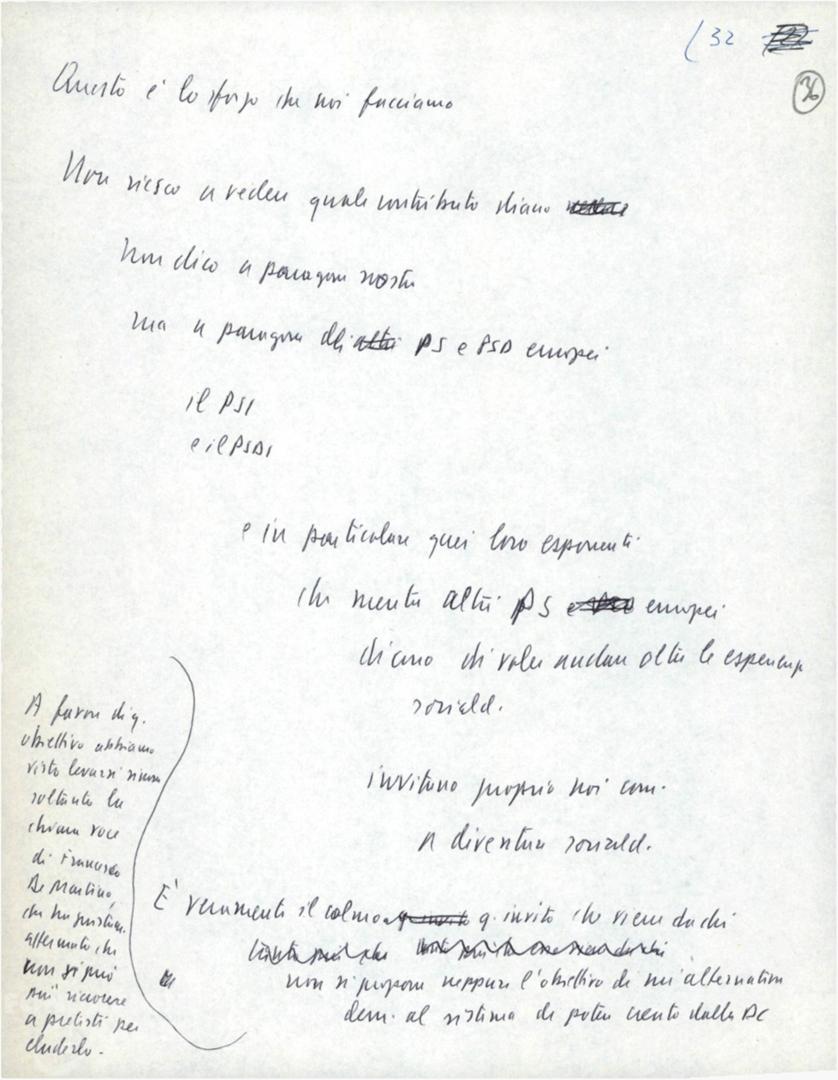 (32
36
Questo è lo sforzo che noi facciamo
Non riesco a vedere quale contributo diano
Non dico a paragone nostro
ma a paragone di altri PS e PSD europei
il PSI
e il PSDI
e in particolare quei loro esponenti
che mentre altri PS europei
dicono di voler andare oltre le esperienze
sociald.
invitano proprio noi com.
a diventare sociald.
È veramente il colmo q. invito che viene da chi
non si propone neppure l'obiettivo di un'alternativa
dem. al sistema di potere creato dalla DC
A favore di q.
obiettivo abbiamo
visto levarsi sinora
soltanto la
chiara voce
di Francesco
De Martino,
che ha
affermato che
non si può
più ricorrere
a pretesti per
eluderlo.